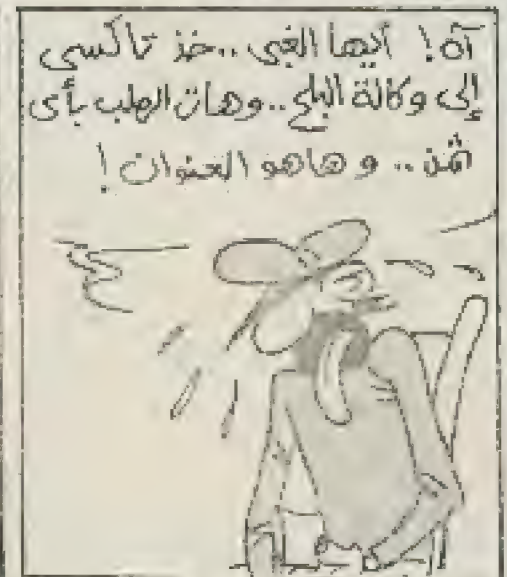 آه! أيها الغبى .. خذ تاكسى
إلى وكالة البلح .. وهات الهلب بأى
ثمن .. و هاهو العنوان !